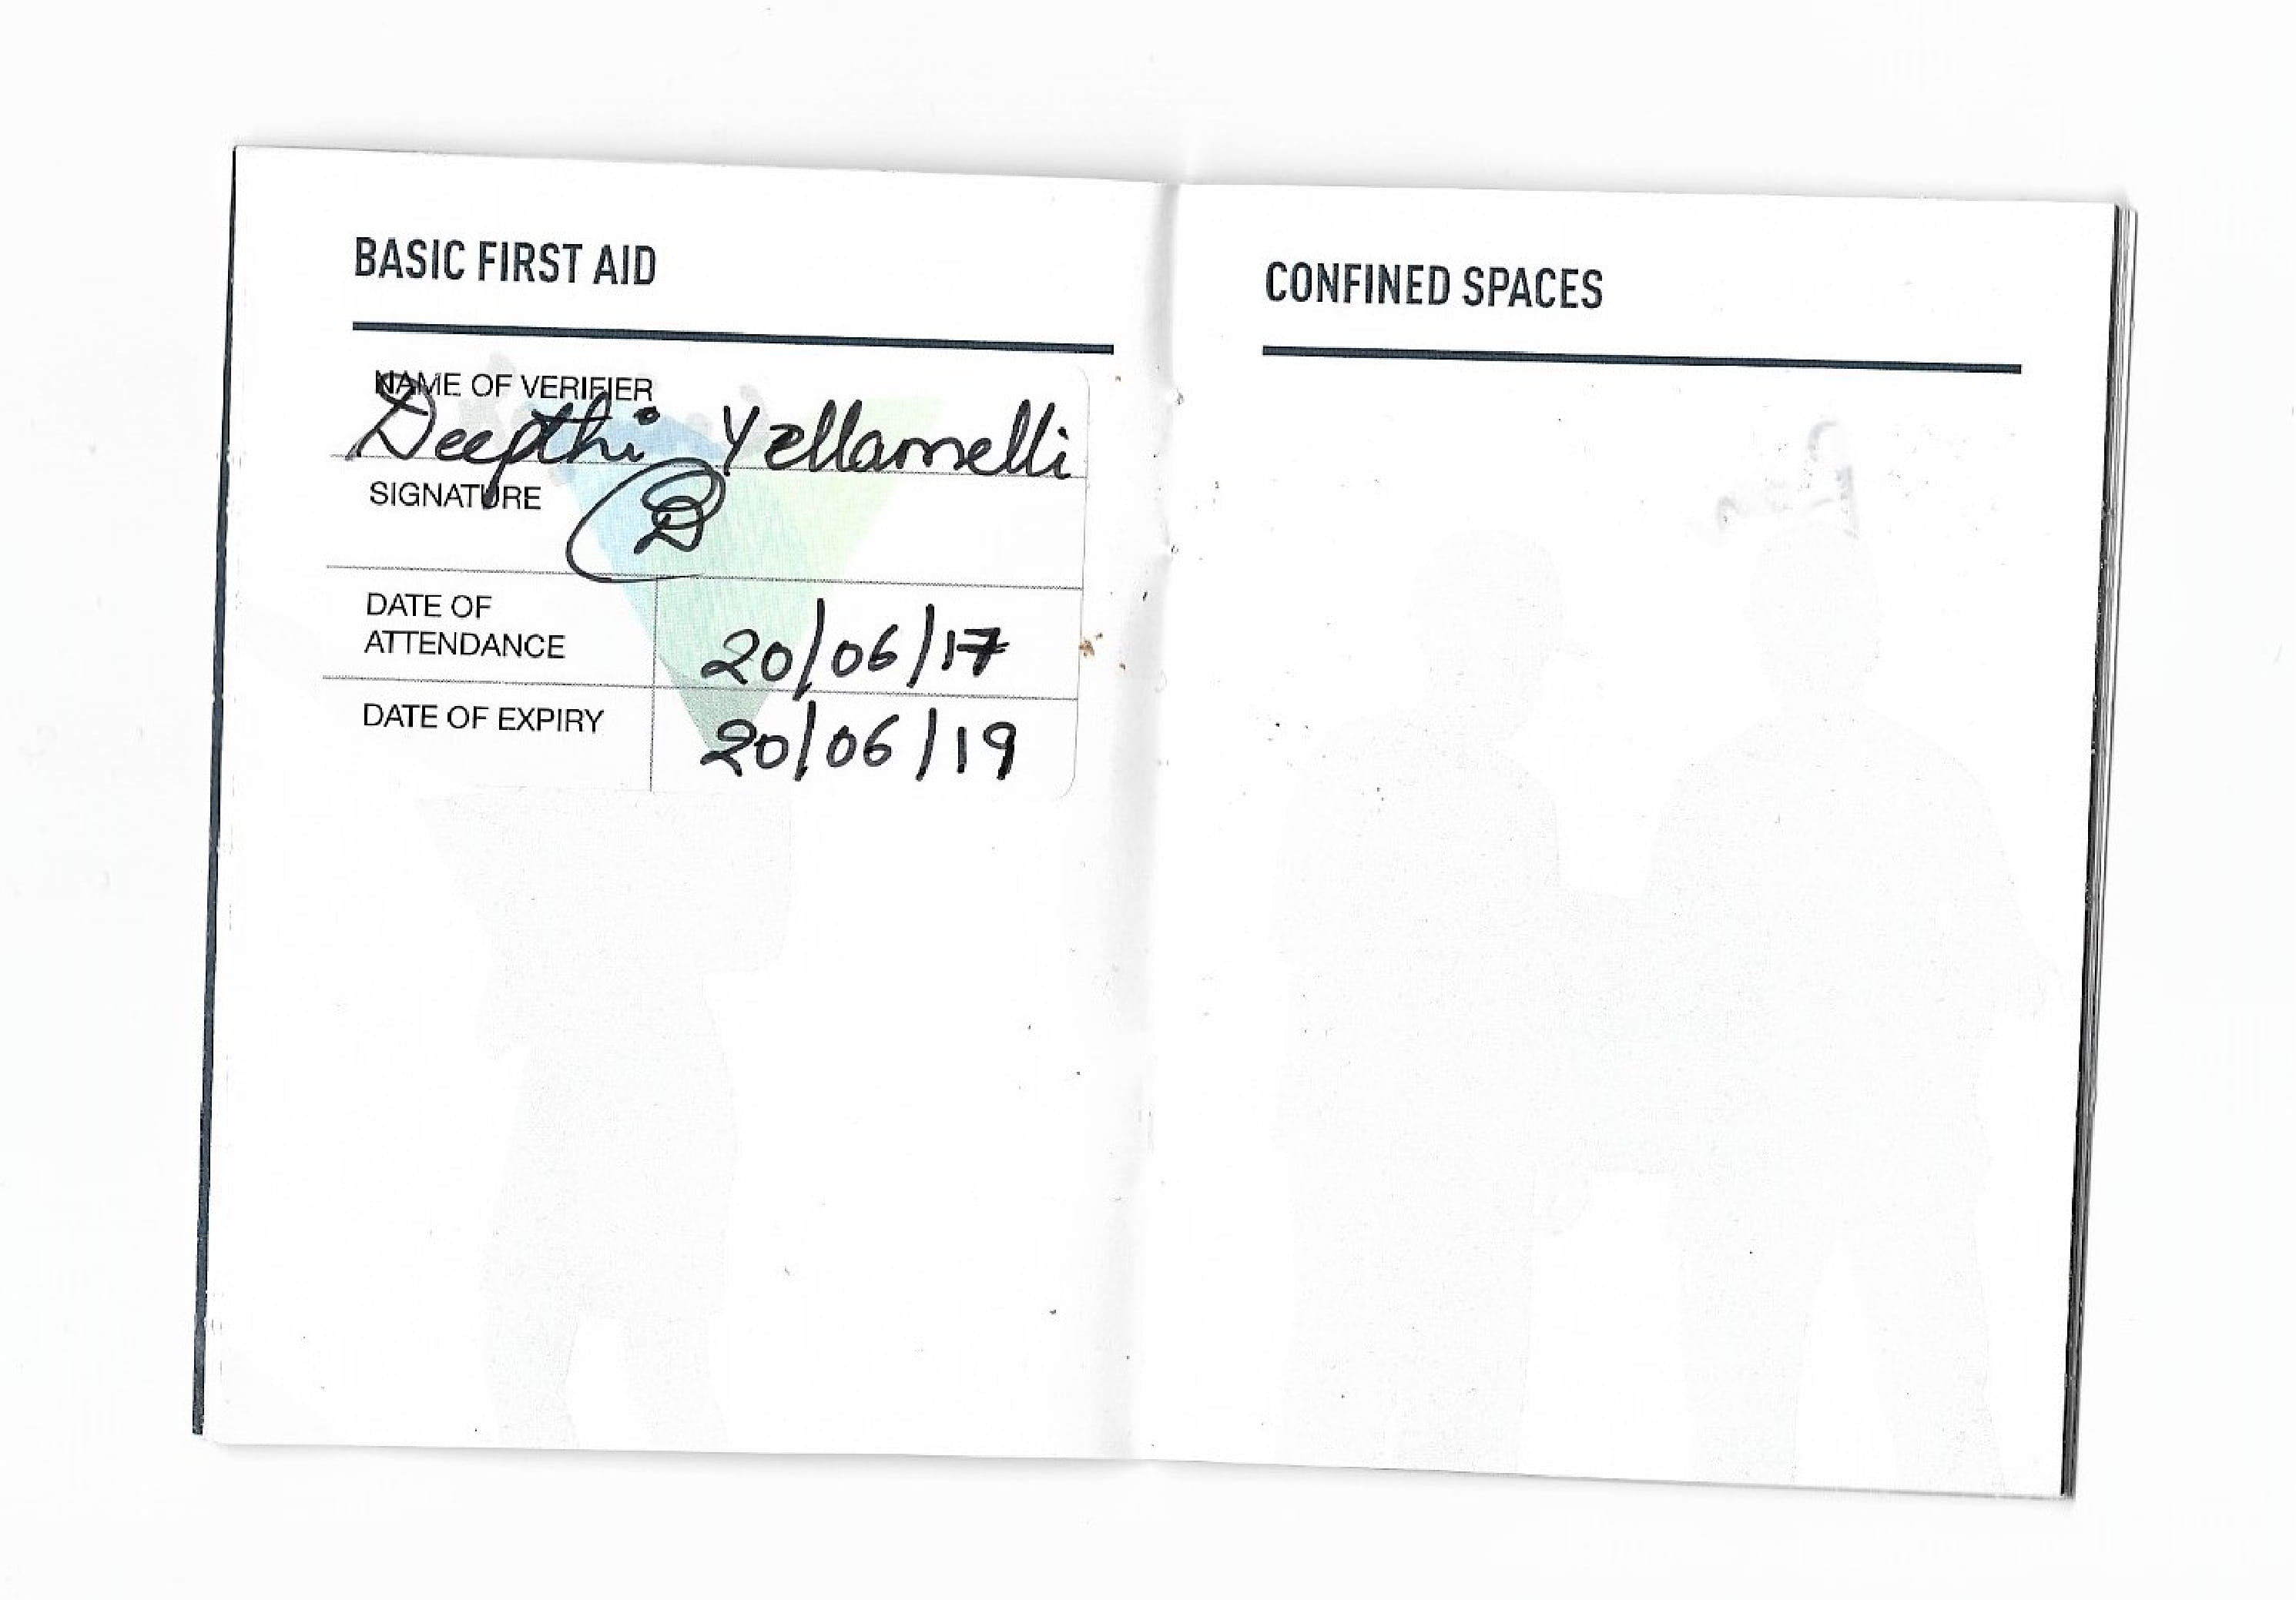 BASIC FIRST AID
NAME OF VERIFIER
Deepthi Yellamelli
SIGNATURE
DATE OF
ATTENDANCE
20/06/17
DATE OF EXPIRY
20/06/19
CONFINED SPACES